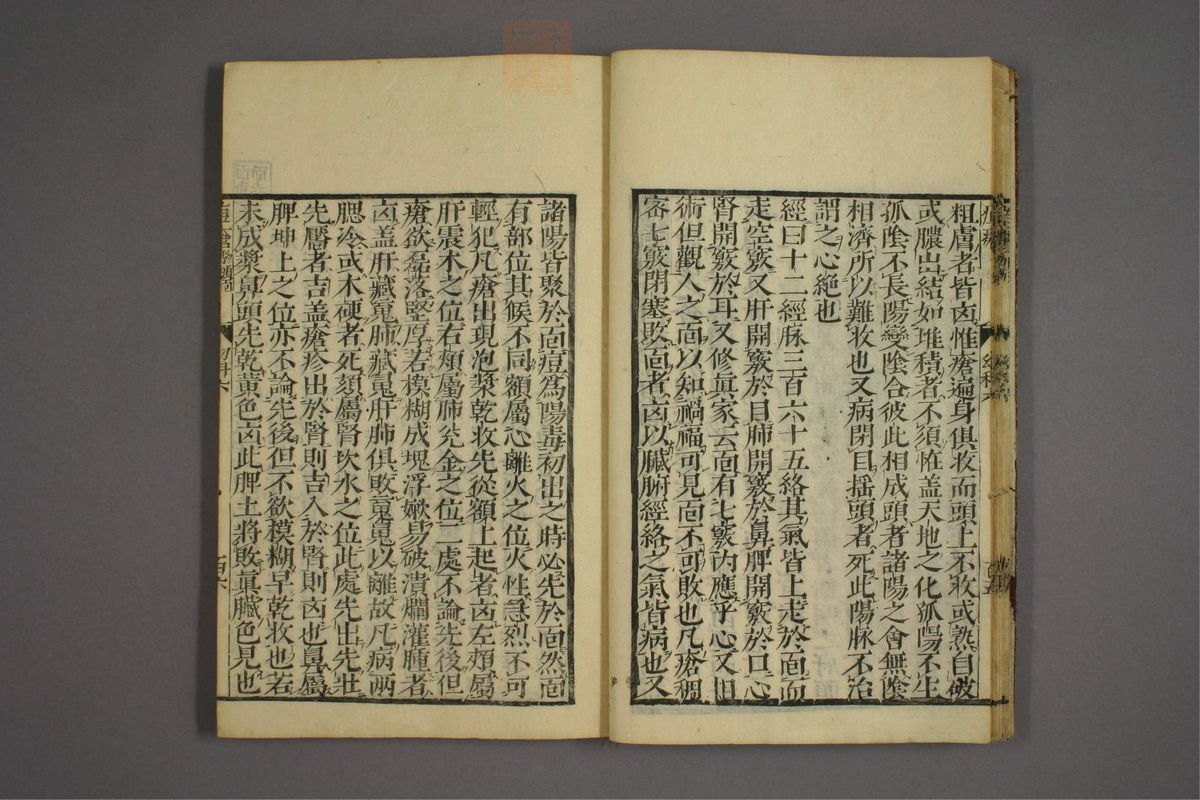 粗膚者皆凶惟瘡遍身俱收而頭上不收或熟自破
或膿出結如堆積者不須怪盖天地之化孤陽不生
孤陰不長陽變陰合彼此相成頭者諸陽之會無陰
相濟所以難收也又病閉目揺頭者死此陽脉不治
謂之心絶也
經曰十二經脉三百六十五絡其氣皆上走於面而
走空竅又肝開竅於目肺開竅於鼻脾開竅於口心
腎開竅於耳又修眞家云面有七竅内應乎心又相
術但觀人之面以知禍福可見面不可敗也凡瘡稠
密七竅閉塞敗面者凶以臟腑經絡之氣皆病也又
諸陽皆聚於面痘爲陽毒初出之時必先於面然面
有部位其候不同額屬心離火之位火性急烈不可
輕犯凡瘡出現泡漿乾收先從額上起者凶左頰屬
肝震木之位右頰屬肺兊金之位二處不論先後但
瘡欲磊落堅厚若模糊成塊浮嫰易破潰爛灌腫者
凶盖肝藏䰟肺藏魄肝肺俱敗䰟魄以離故凡病兩
腮冷或木硬者死頦屬腎坎水之位此處先出先壯
先靨者吉盖瘡疹出於腎則吉入於腎則凶也鼻屬
脾坤土之位亦不論先後但不欲模糊早乾收也若
未成漿鼻頭先乾黄色凶此脾土將敗眞臟色見也
幼科
百六